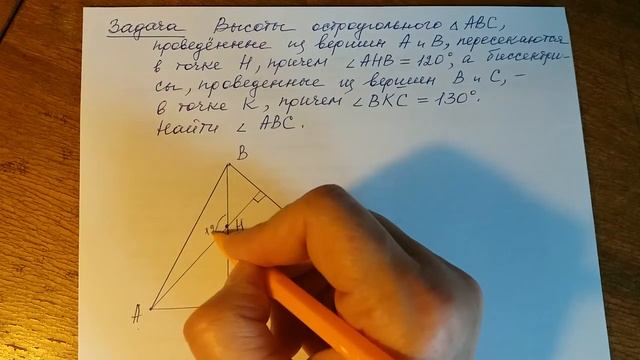 Задача Высоты остроугольного △ABC,
проведённые из вершин A и B, пересекаются
в точке H, причем ∠AHB = 120°, а биссектри-
сы, проведенные из вершин B и C, –
в точке K, причем ∠BKC = 130°.
Найти ∠ ABC.
B
H
A